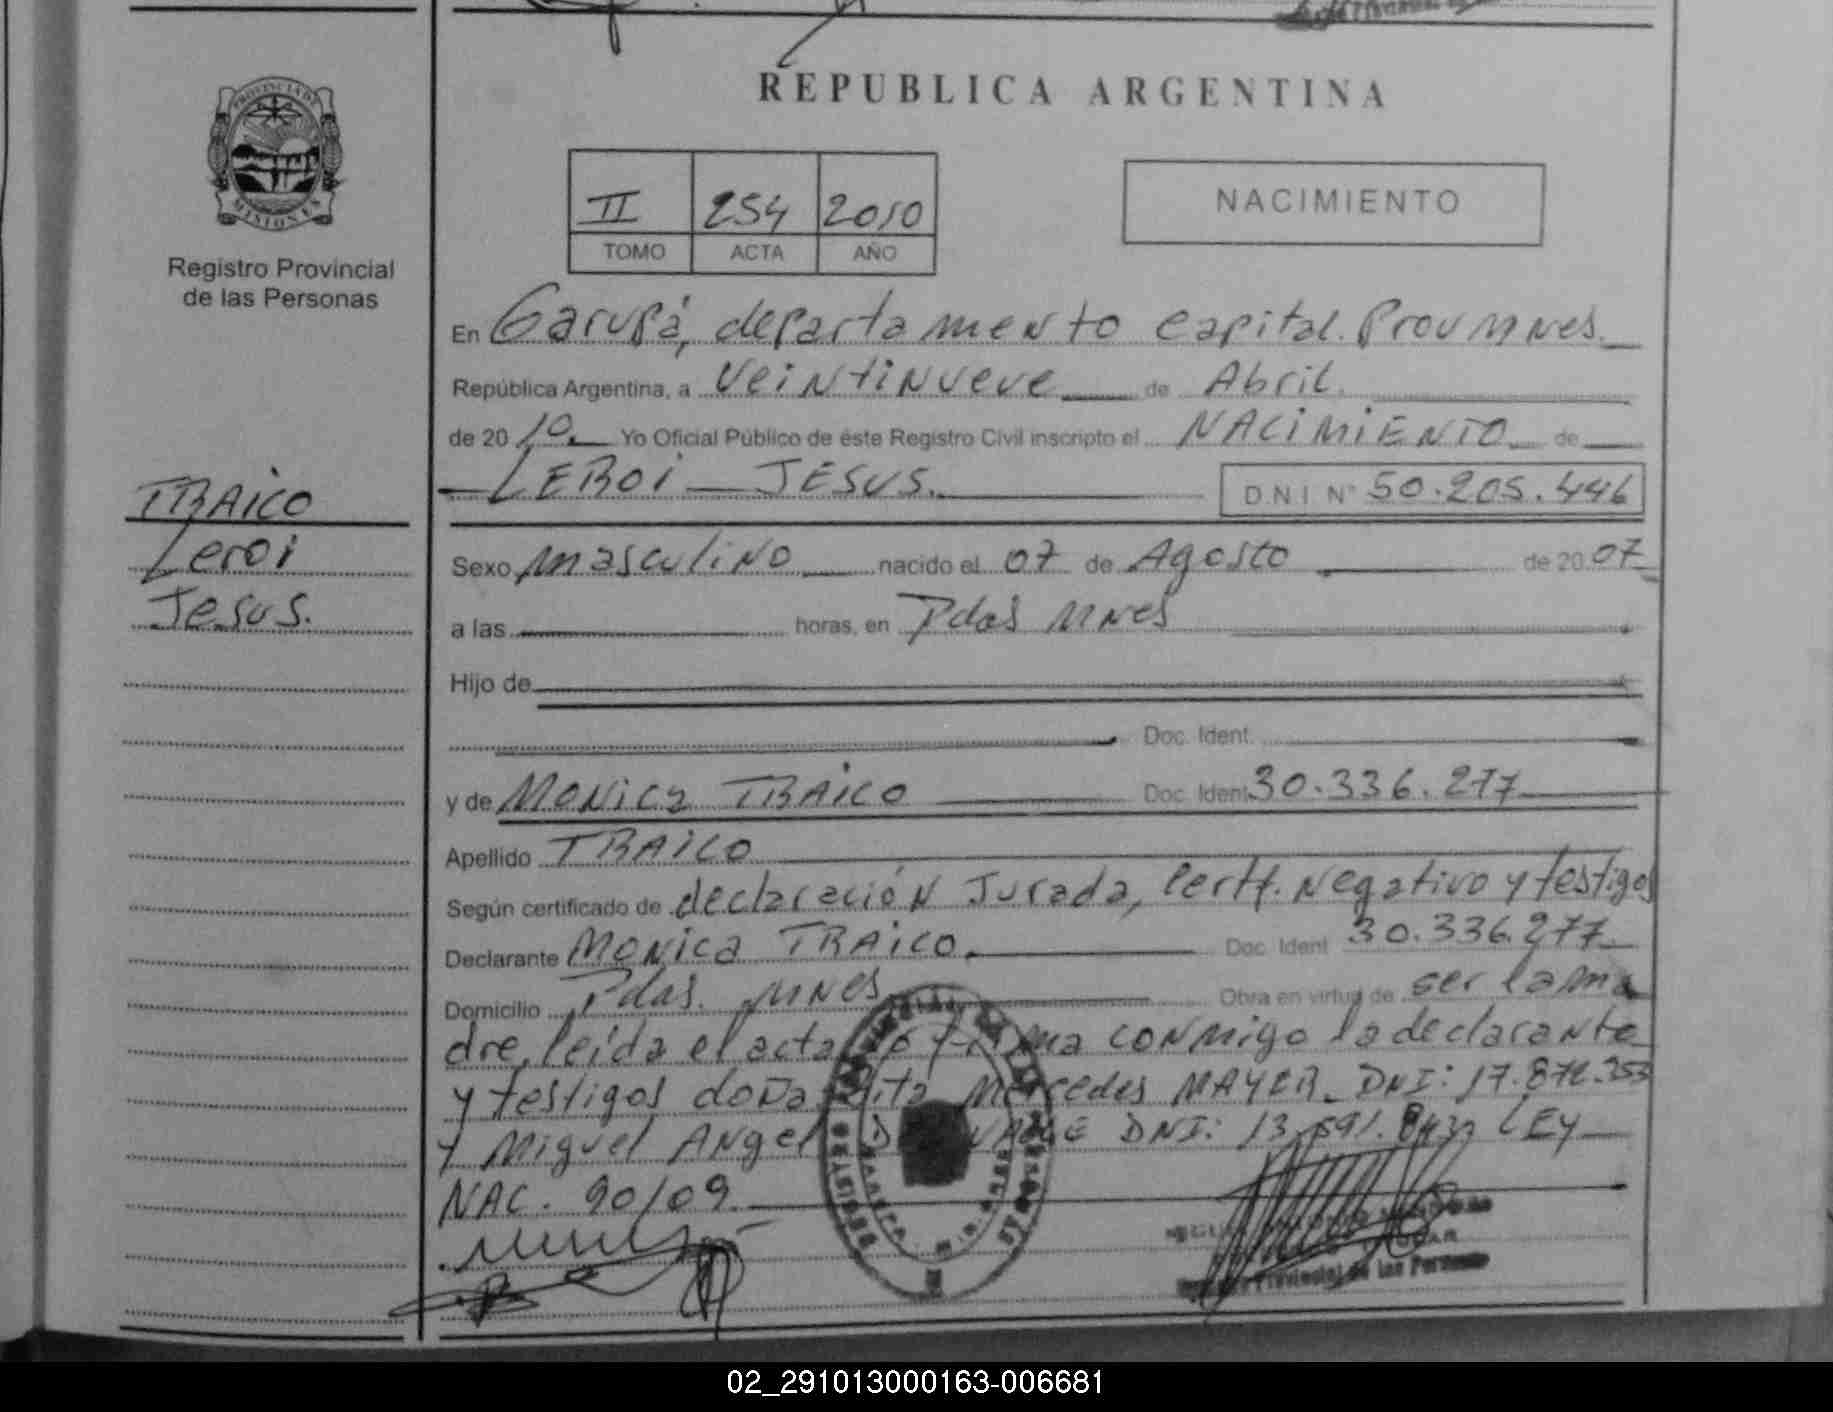 REPUBLICA ARGENTINA
PROVINCIA DE
MISIONES
Registro Provincial
de las Personas
II 254 2010
TOMO ACTA AÑO
NACIMIENTO
En Garupá, departamento capital. Prov Mnes.
República Argentina, a veintinueve de Abril.
de 2010. Yo Oficial Público de éste Registro Civil inscripto el NACIMIENTO de
LEROI JESUS. D.N.I. N° 50.205.446
TRAICO
Leroi
Jesus.
Sexo masculino nacido el 07 de Agosto de 2007
a las horas, en Pdas Mnes
Hijo de
Doc. Ident.
y de MONICA TRAICO Doc. Ident. 30.336.277
Apellido TRAICO
Según certificado de declaración Jurada, Certf. Negativo y testigos
Declarante MONICA TRAICO. Doc. Ident. 30.336.277
Domicilio Pdas. Mnes Obra en virtud de ser la ma
dre, leída el acta firma conmigo la declarante
y testigos doña Rita Mercedes MAYER. DNI: 17.872.353
y Miguel Angel DNI: 13. LEY
NAC. 90/09.
Provincial de las Personas
02_291013000163-006681